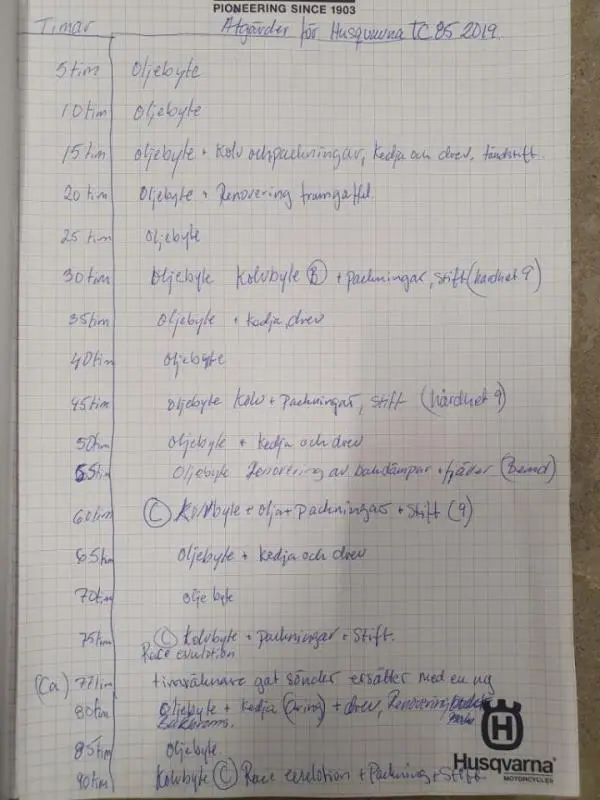 PIONEERING SINCE 1903
Timar Åtgärder för Husqvarna TC 85 2019.
5 tim Oljebyte
10 tim Oljebyte
15 tim Oljebyte + Kolv och packningar, Kedja och drev, tändstift.
20 tim Oljebyte + Renovering framgaffel
25 tim Oljebyte
30 tim Oljebyte Kolvbyte (B) + packningar, stift (hårdhet 9)
35 tim Oljebyte + Kedja, drev
40 tim Oljebyte
45 tim Oljebyte Kolv + Packningar, stift (hårdhet 9)
50 tim Oljebyte + Kedja och drev
55 tim Oljebyte Renovering av bakdämpar + fjäder
60 tim (C) Kolvbyte + olja + packningar + stift (9)
65 tim Oljebyte + Kedja och drev
70 tim Olje byte
75 tim (C) Kolvbyte + packningar + Stift.
Race evulotion
(Ca) 77 tim timräknare gåt sönder ersätter med en ny
80 tim Oljebyte + Kedja (Oring) + drev, Renovering
Bakbroms.
85 tim Oljebyte.
90 tim Kolvbyte (C) Race evelotion + Packning + Stift
Husqvarna
MOTORCYCLES